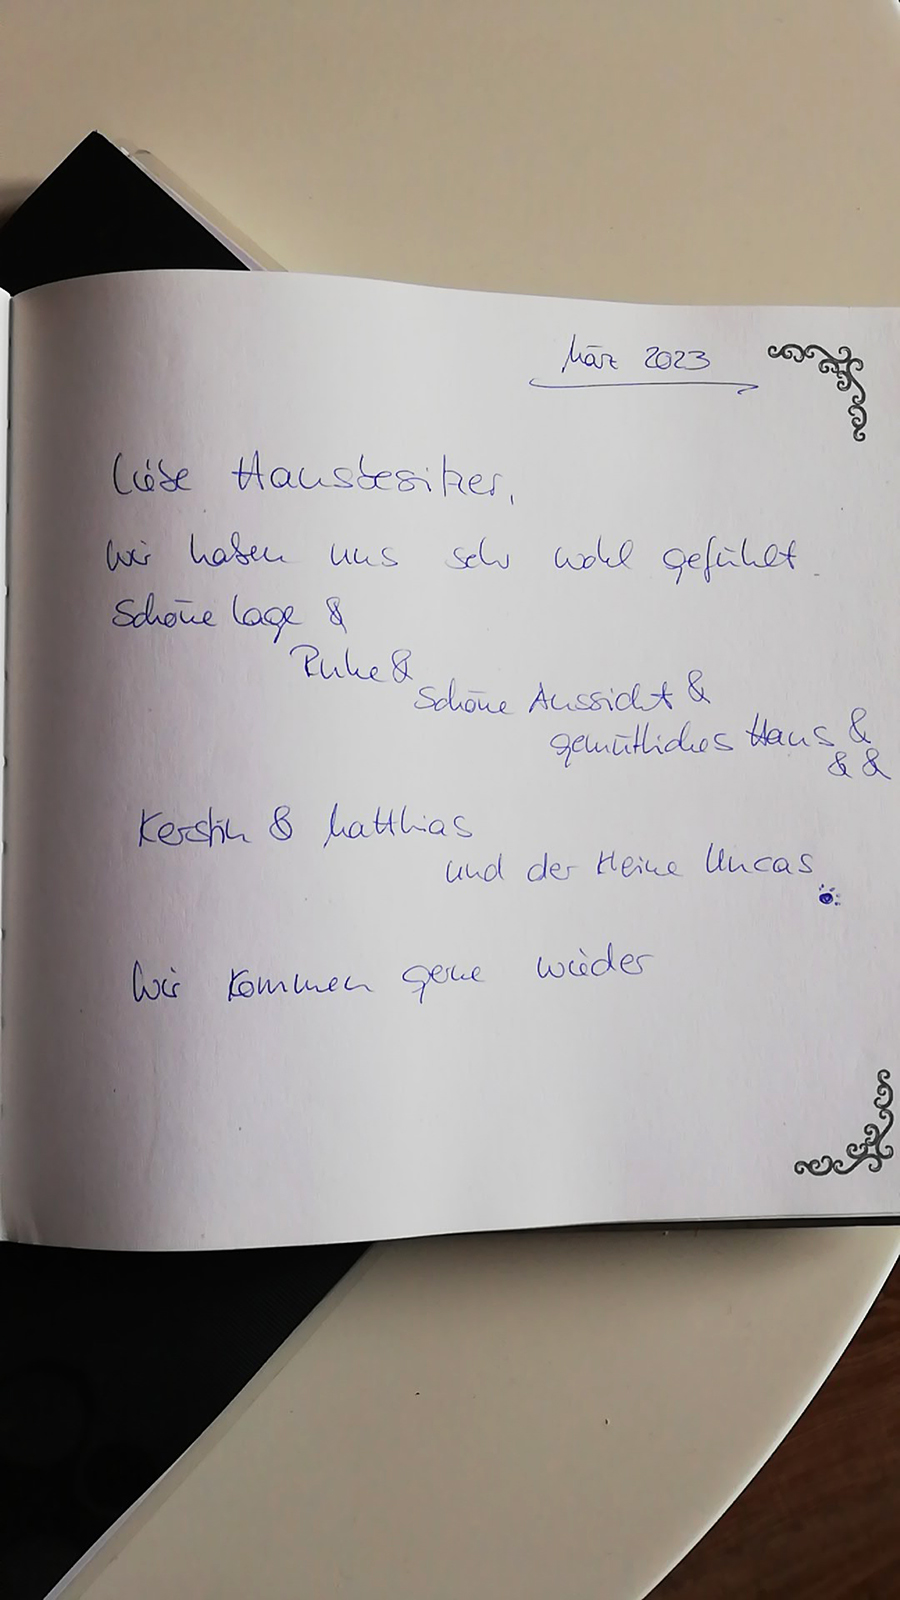 März 2023
Liebe Hausbesitzer,
wir haben uns sehr wohl gefühlt.
Schöne Lage &
Ruhe &
schöne Aussicht &
gemütliches Haus &
& &
Kerstin & Matthias
und der kleine Uncas
Wir kommen gerne wieder